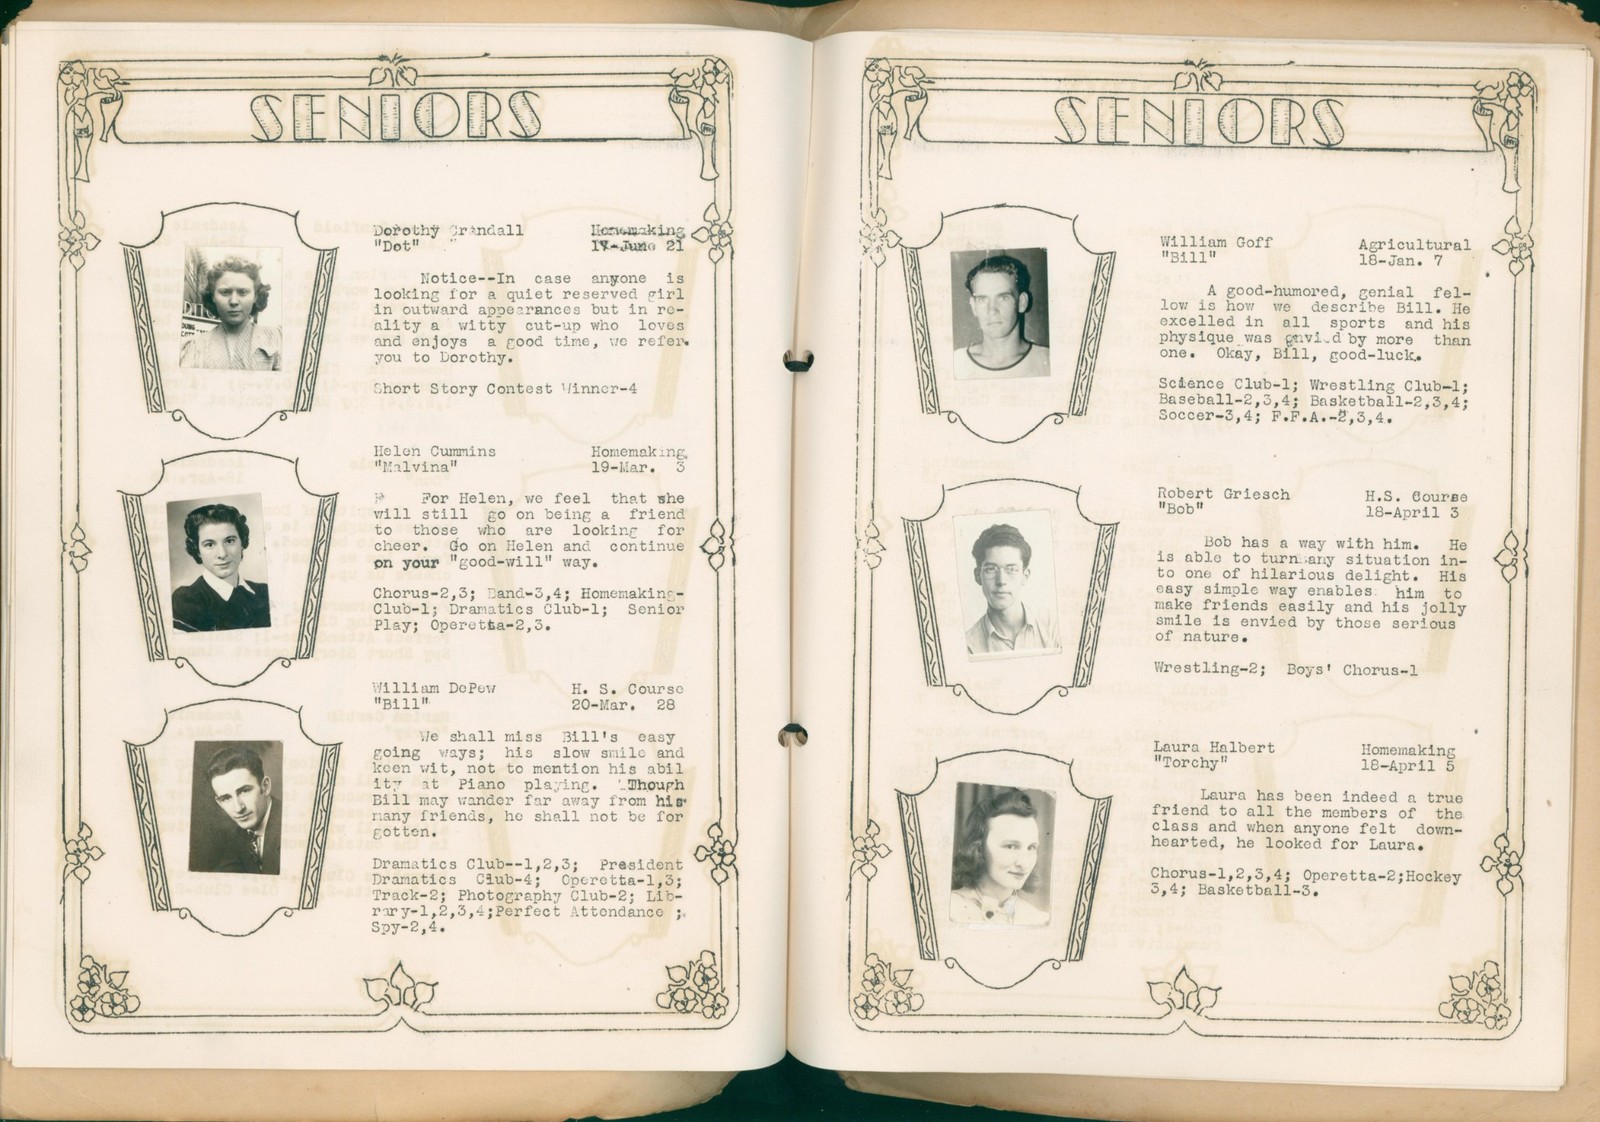 SENIORS
Dorothy Crandall Homemaking
"Dot" 17-June 21
Notice--In case anyone is
looking for a quiet reserved girl
in outward appearances but in re-
ality a witty cut-up who loves
and enjoys a good time, we refer
you to Dorothy.
Short Story Contest Winner-4
Helen Cummins Homemaking
"Malvina" 19-Mar. 3
For Helen, we feel that she
will still go on being a friend
to those who are looking for
cheer. Go on Helen and continue
on your "good-will" way.
Chorus-2,3; Band-3,4; Homemaking-
Club-1; Dramatics Club-1; Senior
Play; Operetta-2,3.
William DePew H. S. Course
"Bill" 20-Mar. 28
We shall miss Bill's easy
going ways; his slow smile and
keen wit, not to mention his abil
ity at Piano playing. Though
Bill may wander far away from his
many friends, he shall not be for
gotten.
Dramatics Club--1,2,3; President
Dramatics Club-4; Operetta-1,3;
Track-2; Photography Club-2; Lib-
rary-1,2,3,4;Perfect Attendance ;
Spy-2,4.
SENIORS
William Goff Agricultural
"Bill" 18-Jan. 7
A good-humored, genial fel-
low is how we describe Bill. He
excelled in all sports and his
physique was envied by more than
one. Okay, Bill, good-luck.
Science Club-1; Wrestling Club-1;
Baseball-2,3,4; Basketball-2,3,4;
Soccer-3,4; F.F.A.-2,3,4.
Robert Griesch H.S. Course
"Bob" 18-April 3
Bob has a way with him. He
is able to turn any situation in-
to one of hilarious delight. His
easy simple way enables him to
make friends easily and his jolly
smile is envied by those serious
of nature.
Wrestling-2; Boys' Chorus-1
Laura Halbert Homemaking
"Torchy" 18-April 5
Laura has been indeed a true
friend to all the members of the
class and when anyone felt down-
hearted, he looked for Laura.
Chorus-1,2,3,4; Operetta-2;Hockey
3,4; Basketball-3.